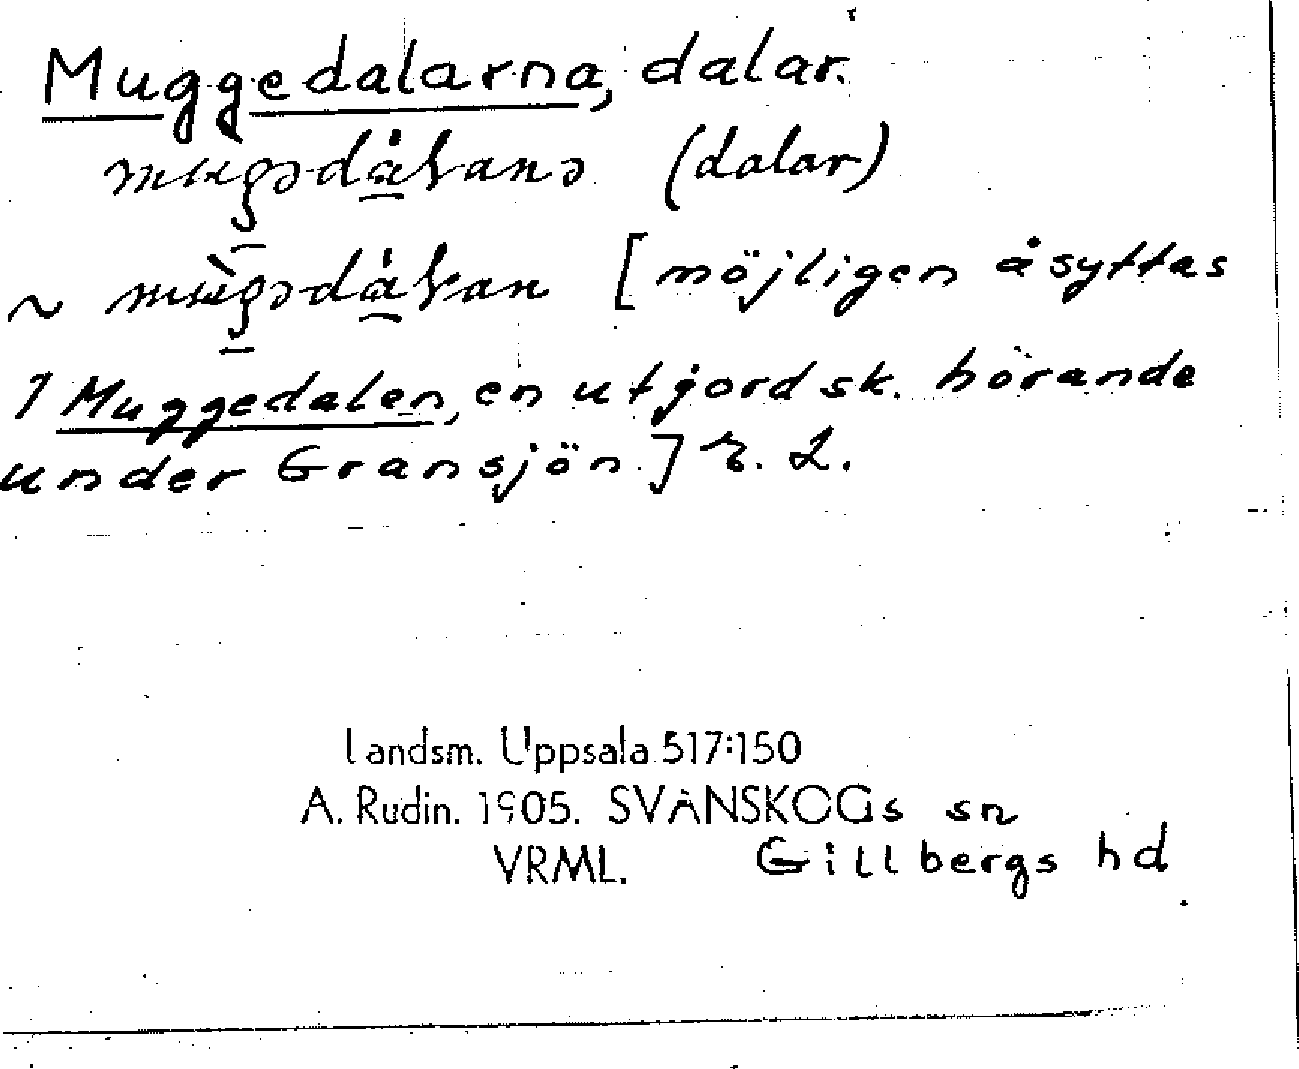 Muggedalarna, dalar.
(dalar)
~ [möjligen åsyftas
1 Muggedalen, en utjord sk. hörande
under Gränsjön.] R. 2.
Landsm. Uppsala 517:150
A. Rudin. 1905. SVANSKOGs sn
VRML. Gillbergs hd